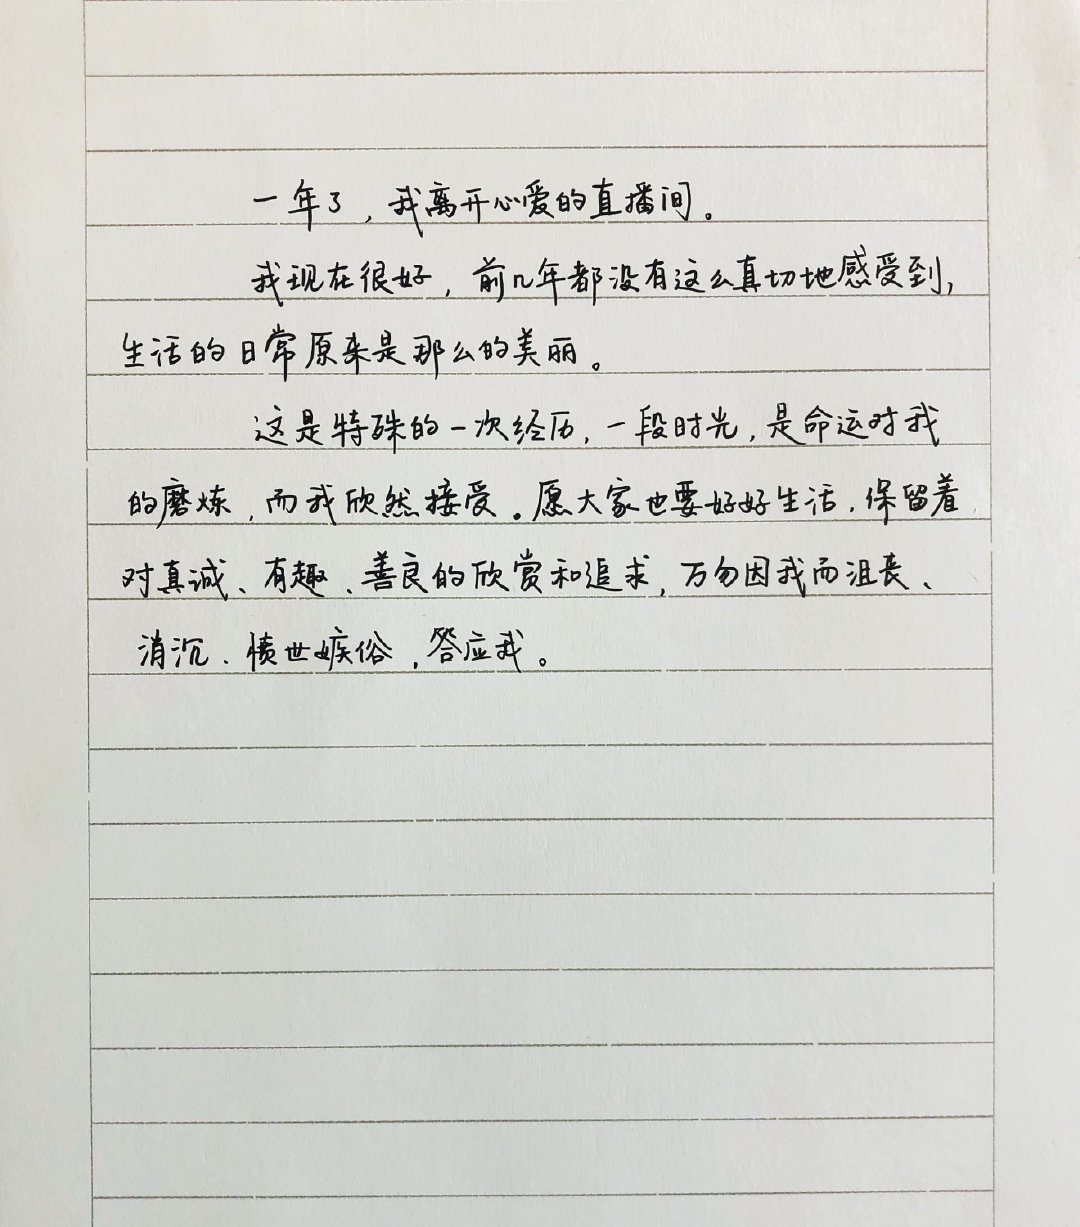 一年了，我离开心爱的直播间。
我现在很好，前几年都没有这么真切地感受到，
生活的日常原来是那么的美丽。
这是特殊的一次经历，一段时光，是命运对我
的磨炼，而我欣然接受。愿大家也要好好生活，保留着
对真诚、有趣、善良的欣赏和追求，万勿因我而沮丧、
消沉、愤世嫉俗，答应我。